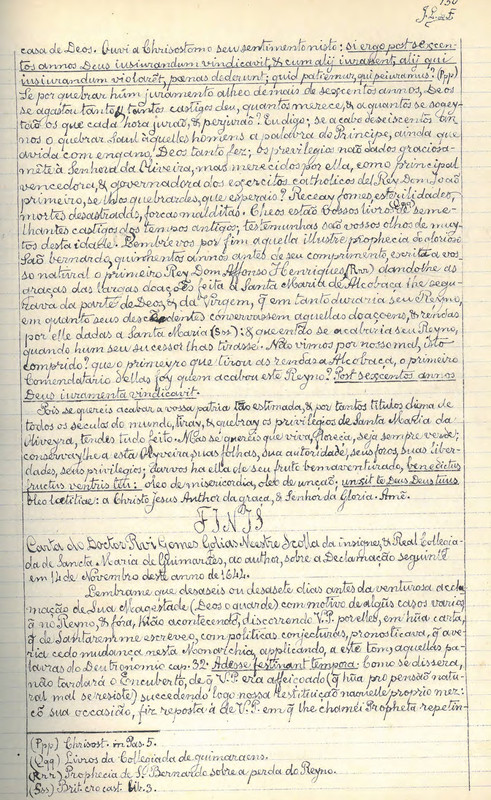 130
J. L. de F.
casa de Deos. Ouvi a Chrisostomo seu sentimento nisto: si ergo post sexcen-
tos annos Deus iusiurandum vindicavit, & cum alij iurassent, alij qui
iusiurandum violarẽt, pœnas dederunt: quid patiemur, qui peiuramus: (Ppp)
Se por quebrar hum juramento alheo de mais de seiscentos annos, Deos
se agastou tanto, & tantos castigos deu, quantos merece, & a quantos se sogey-
tão os que cada hora jurão, & perjurão? Eu digo; se a cabo de seiscentos an-
nos o quebrar Saul àquelles homens a palavra do Principe, ainda que
avida com engano, Deos tanto fez; os previlegios não dados graciosa-
mẽte à Senhora da Oliveira, mas merecidos por ella, como principal
vencedora, & governadora dos exercitos catholicos del Rey Dom João
primeiro, se lhos quebrardes, que esperais? Receay fomes, esterilidades,
mortes desastradas, forcas malditas. Cheos estão vossos livros (Qqq) de seme-
lhantes castigos dos tempos antigos, testemunhas são vossos olhos de muy-
tos desta idade. Lembrevos por fim aquella illustre prophecia do glorioso
São bernardo, quinhentos annos antes de seu comprimento, escrita a vos-
so natural o primeiro Rey Dom Affonso Henriques (Rrr) dandolhe as
graças das largas doações feita a Santa Maria de Alcobaça lhe segu-
rava da parte de Deos, & da Virgem, q̃ em tanto duraria seu Reyno,
em quanto seus descendentes conservassem aquellas doaçoens, & rendas
por elle dadas a Santa Maria (Sss): & que então se acabaria seu Reyno,
quando hum seu successor lhas tirasse. Não vimos por nosso mal, isto
comprido? que o primeyro que tirou as rendas a Alcobaça, o primeiro
Comendatario dellas foy quem acabou este Reyno? Post sexcentos annos
Deus iuramenta vindicavit.
Pois se quereis acabar a vossa patria tão estimada, & por tantos titulos digna de
todos os seculos do mundo, tiray, & quebray os privilegios de Santa Maria da
Oliveyra, tendes tudo feito. Mas se quereis que viva, floreçia, seja sempre verde;
conservaylhe a esta Olyveira suas folhas, sua autoridade, seus foros, suas liber-
dades, seus privilegios; darvos ha ella de seu fruto bemaventurado, benedictus
fructus ventris tui: oleo de misericordia, oleo de unção, unxit te Deus Deus tuus
oleo lætitiæ: a Christo Jesus Author da graça, & Senhor da Gloria. Amẽ.
FINIS
Carta do Doctor Rui Gomes Golias Mestre Scolla da insigne, & Real Collegia-
da de Sancta Maria de Guimarães, ao author, sobre a Declamação seguinte
em 14 de Novembro deste anno de 1644.
Lembrame que dasaseis ou dasasete dias antes da venturosa accla-
mação de Sua Magestade (Deos o guarde) com motivo de algũs casos varios
q̃ no Reyno, & fóra, hião acontecendo, discorrendo V. P. por elles, em hũa carta,
q̃ de Santarem me escreveo, com politicas conjecturas, pronosticava, q̃ ave-
ria cedo mudança nesta Monarchia, applicando, a este tom, aquellas pa-
lavras do Deutronomio cap. 32. Adesse festinant tempora. Como se dissera,
não tardará o Encuberto, de q̃ V. P. era affeicoado (q̃ hũa propensão natu-
ral mal se resiste) succedendo logo nossa restituição naquelle proprio mez:
cõ sua occasião, fiz reposta à de V. P. em q̃ lhe chamei Propheta repetin-
(Ppp) Chrisost. in Pas. 5.
(Qqq) Livros da Collegiada de guimaraens.
(Rrr) Prophecia de S. Bernardo sobre a perda do Reyno.
(Sss) Brit. cro cast. lib. 3.